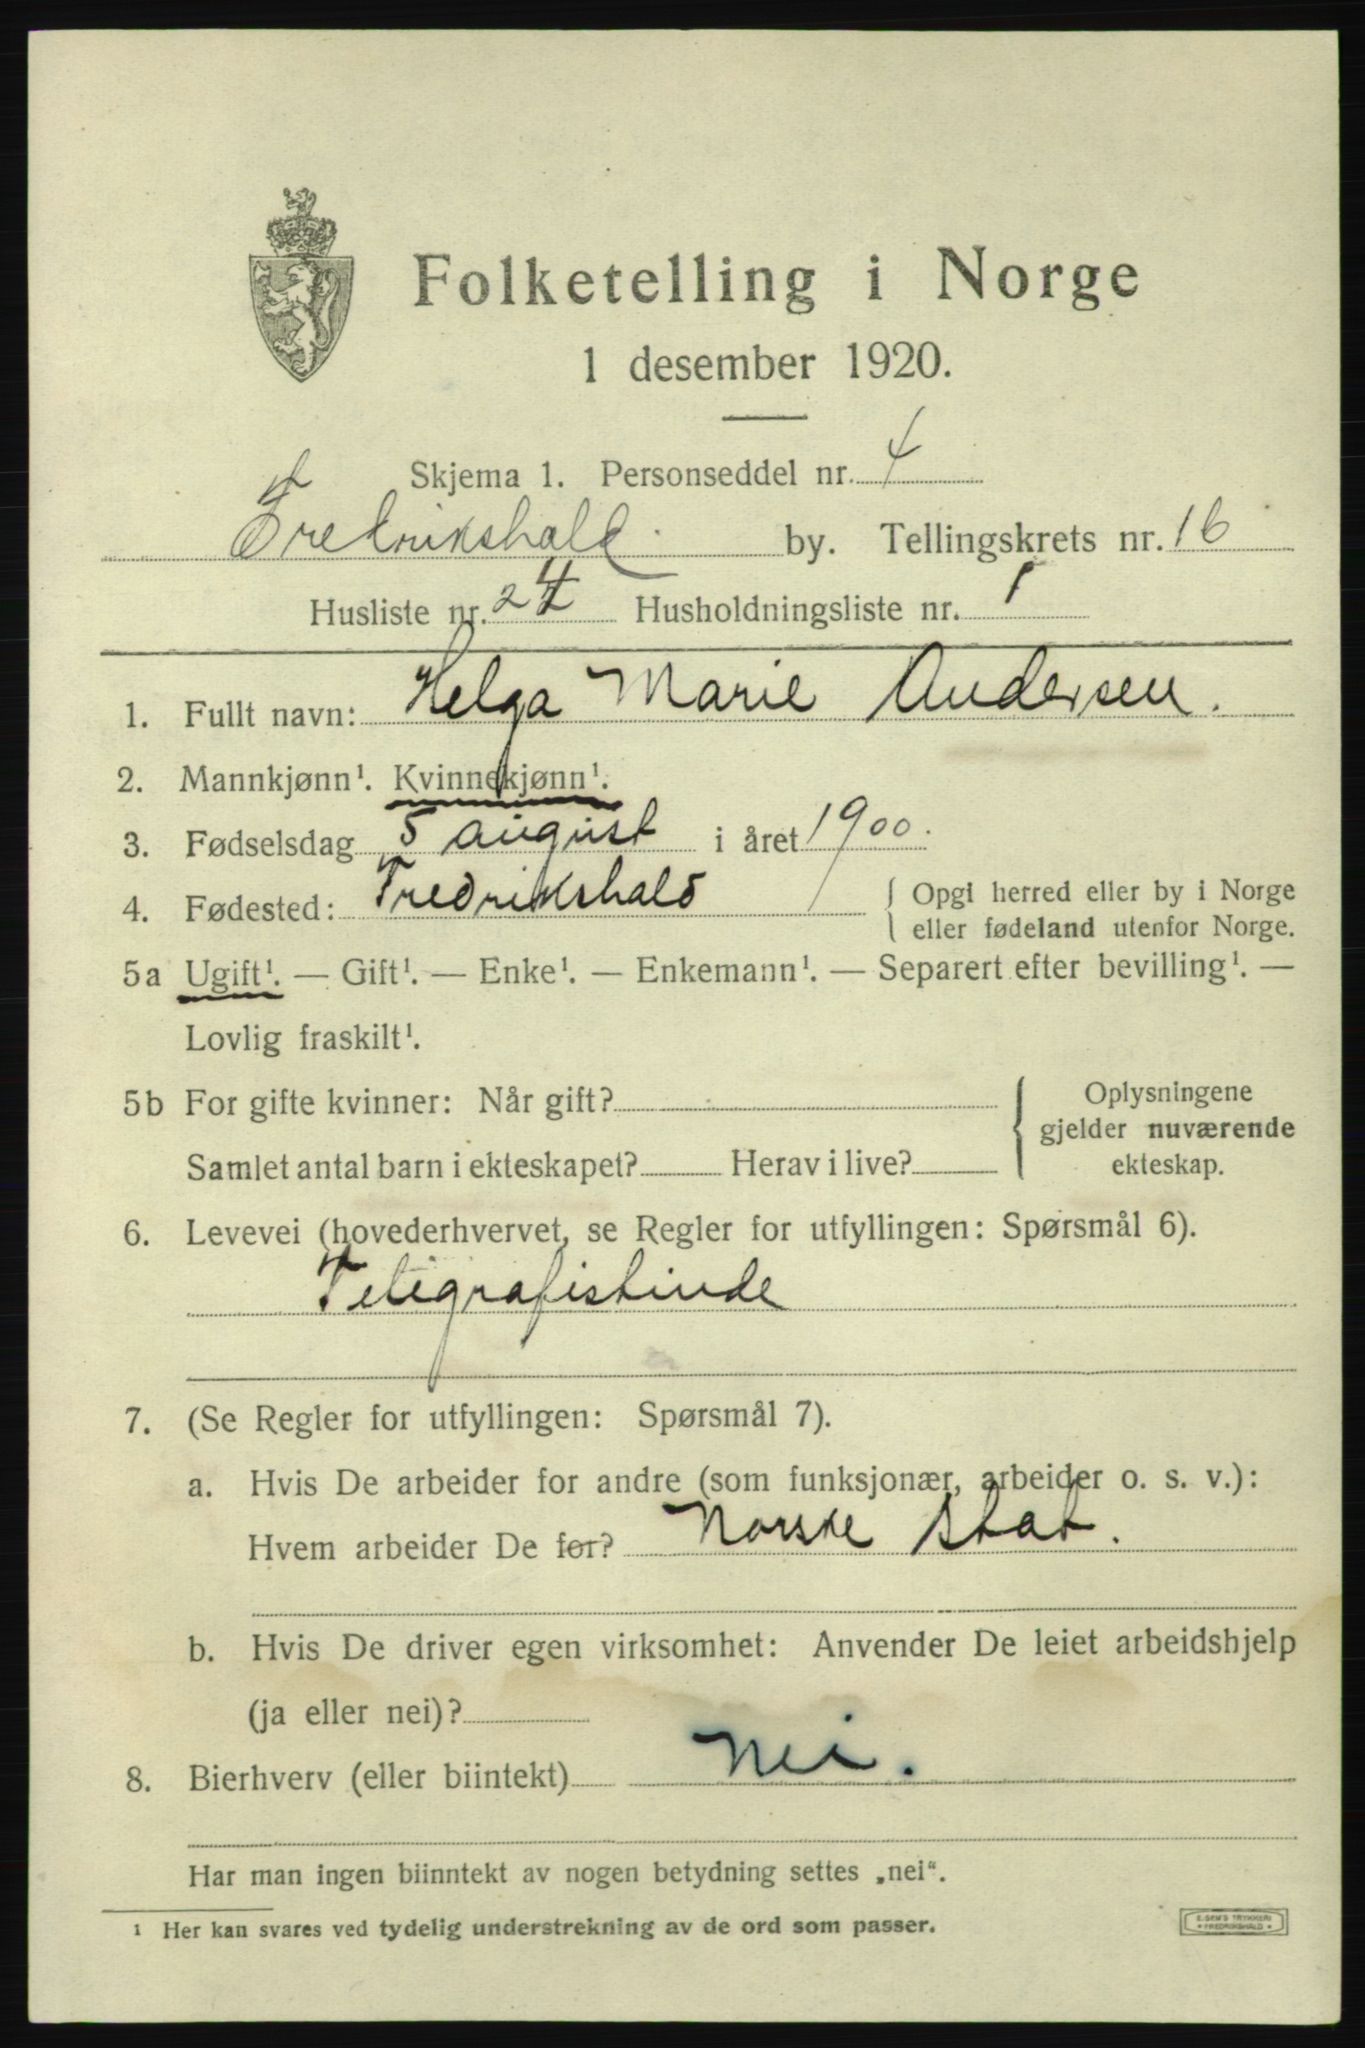 Folketelling i Norge
1 desember 1920.
Skjema 1. Personseddel nr. 4
Fredrikshald. by. Tellingskrets nr. 16
Husliste nr. 24 Husholdningsliste nr. 1
1. Fullt navn: Helga Marie Andersen.
2. Mannkjønn¹. Kvinnekjønn¹.
3. Fødselsdag 5 august i året 1900.
4. Fødested: Fredrikshald { Opgi herred eller by i Norge
eller fødeland utenfor Norge.
5a Ugift¹. — Gift¹. — Enke¹. — Enkemann¹. — Separert efter bevilling¹. —
Lovlig fraskilt¹.
5b For gifte kvinner: Når gift? { Oplysningene
gjelder nuværende
Samlet antal barn i ekteskapet? Herav i live? ekteskap.
6. Levevei (hovederhvervet, se Regler for utfyllingen: Spørsmål 6).
Teligrafistinde
7. (Se Regler for utfyllingen: Spørsmål 7).
a. Hvis De arbeider for andre (som funksjonær, arbeider o. s. v.):
Hvem arbeider De for? Norske Stat.
b. Hvis De driver egen virksomhet: Anvender De leiet arbeidshjelp
(ja eller nei)?
8. Bierhverv (eller biintekt) Nei.
Har man ingen biinntekt av nogen betydning settes „nei“.
¹ Her kan svares ved tydelig understrekning av de ord som passer.
E. SEM'S TRYKKERI
• FREDRIKSHALD •